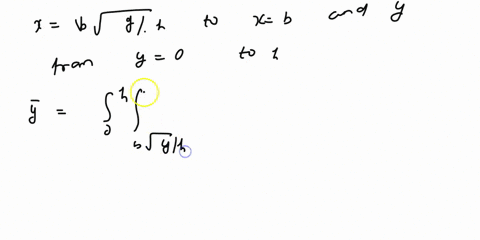 x = b √ y/h to x = b and y
from y = 0 to h
ȳ = ∫₀ʰ ∫_{b√y/h}